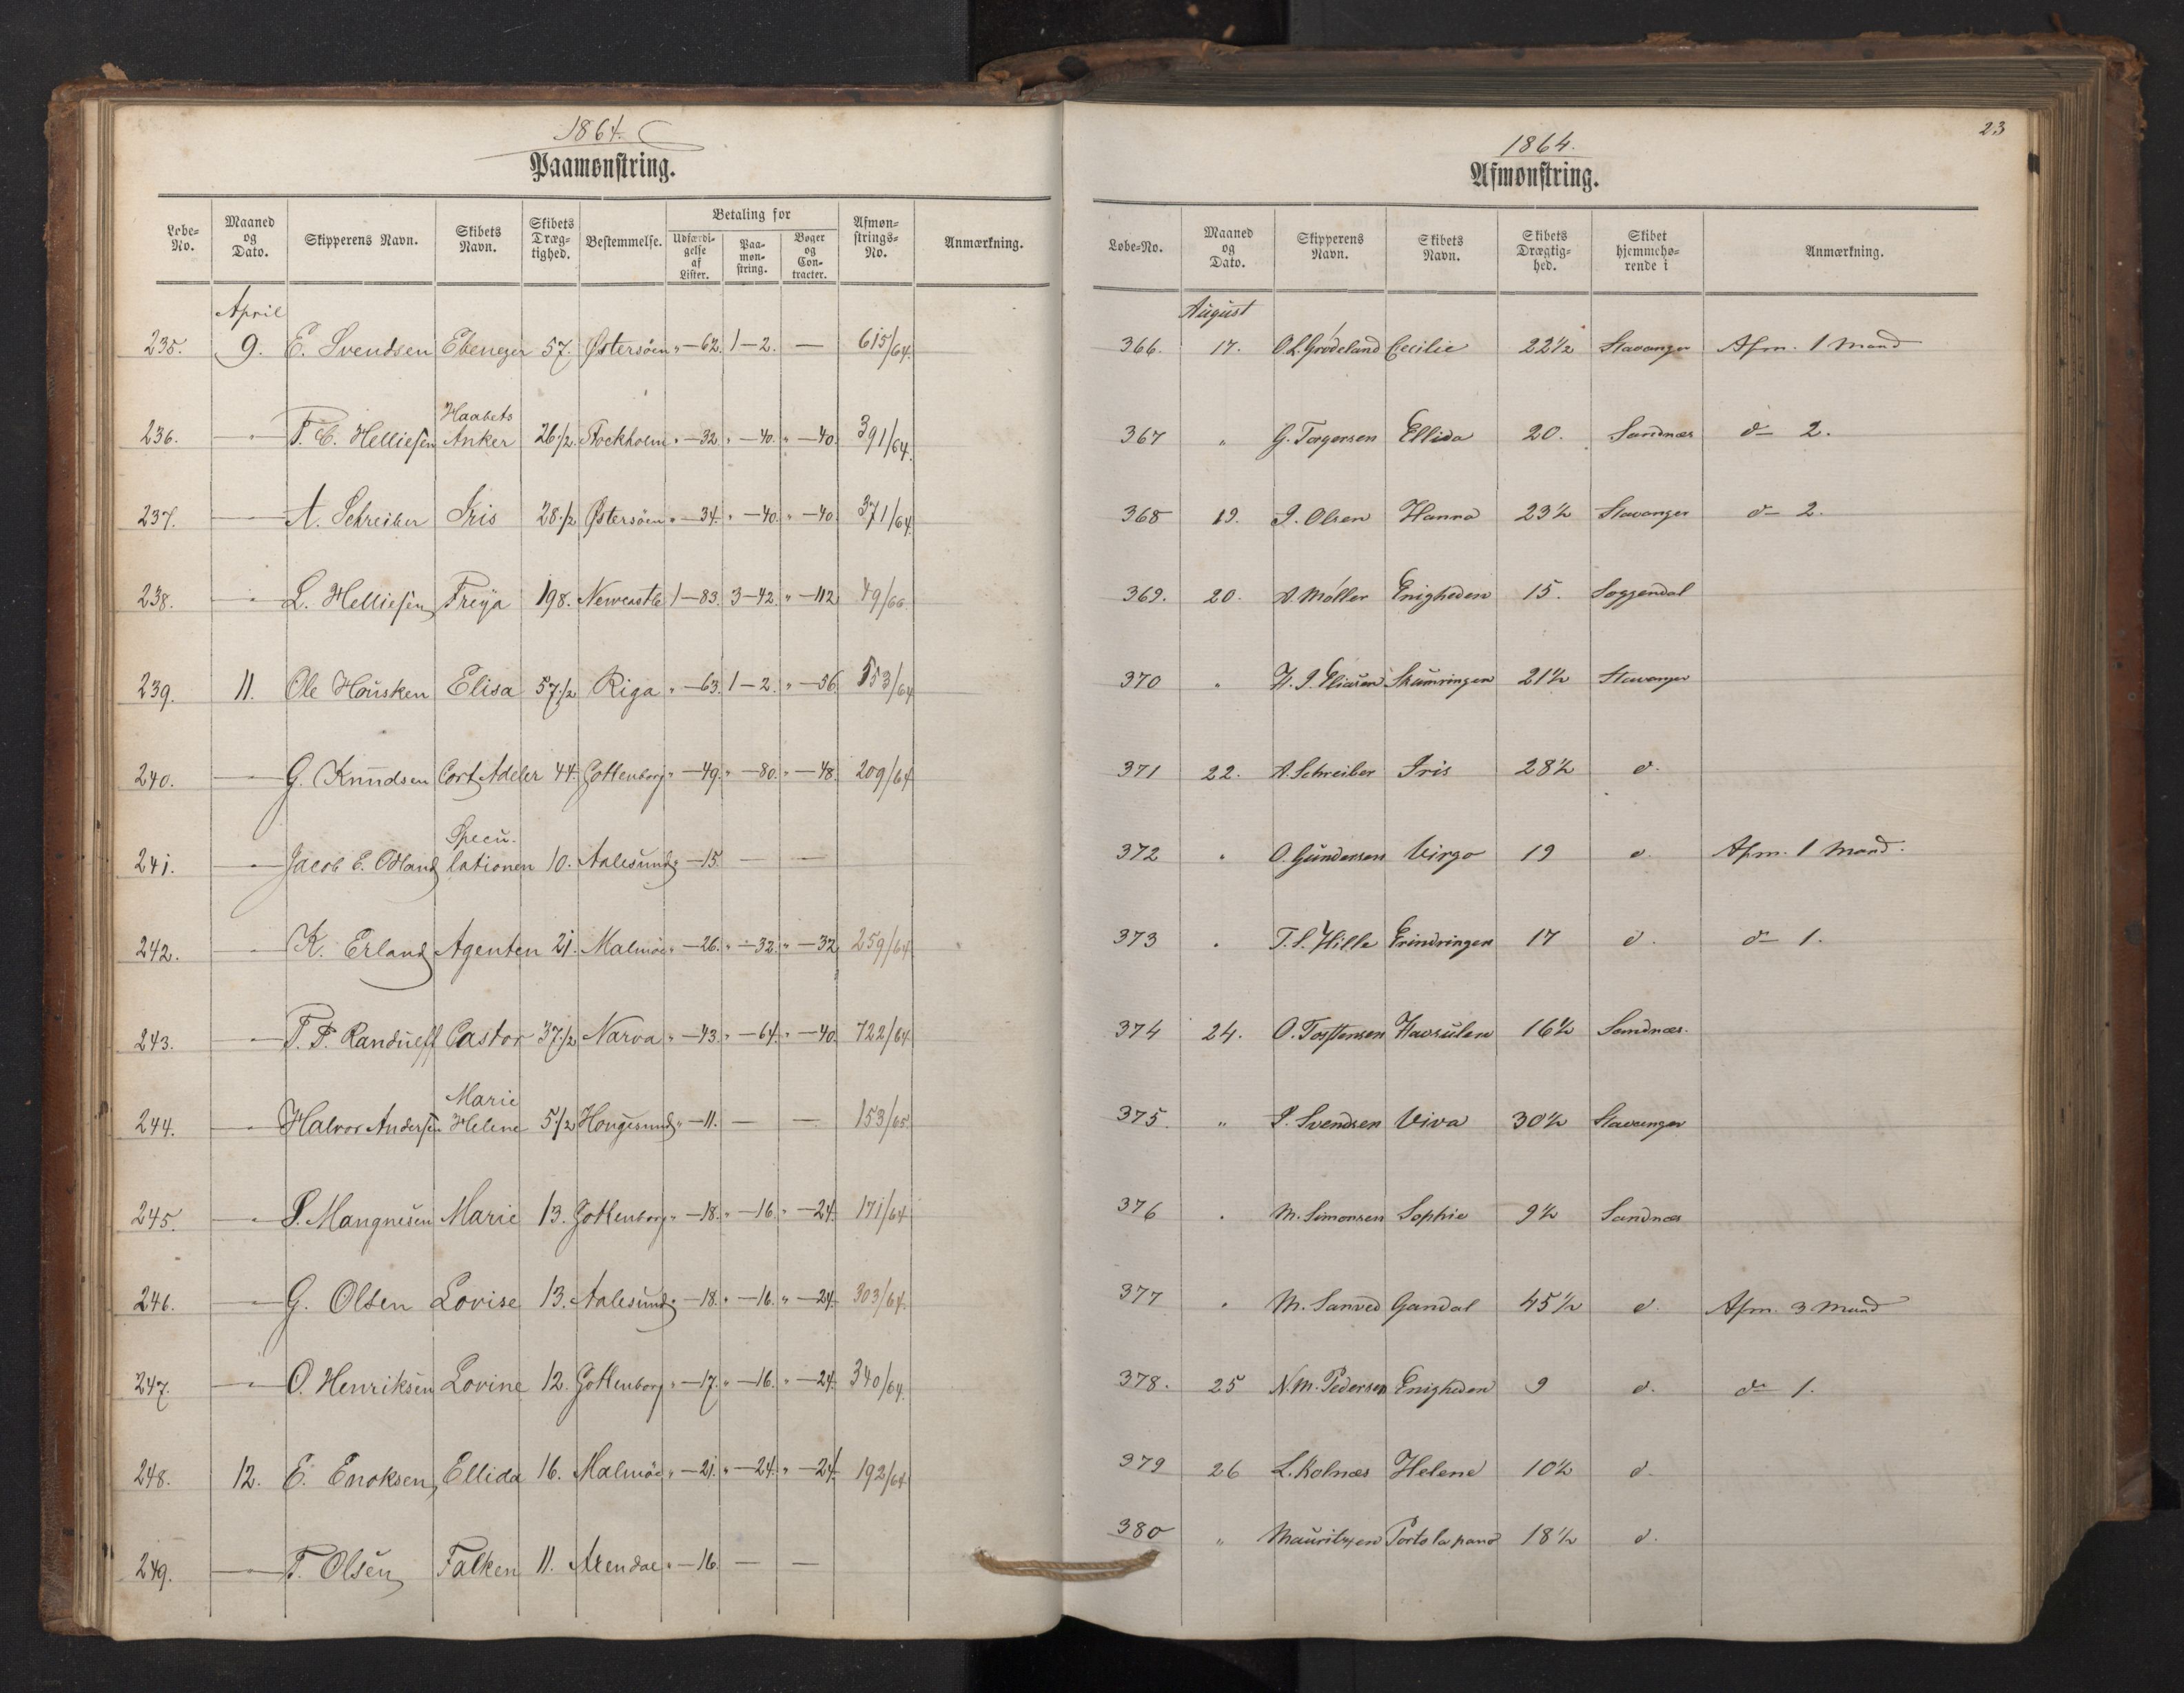 1864.
Paamønstring.
Løbe-No. Maaned og Dato. Skipperens Navn. Skibets Navn. Skibets Dræg-tighed. Bestemmelse. Betaling for Udfærdi-gelse af Lister. Paa-møn-string. Bøger og Con-tracter. Afmøn-strings-No. Anmærkning.
April
235. 9. E. Svendsen Ebenezer 57. Østersöen " — 62. 1 — 2. — 615/64.
236. — " — T. C. Helliesen Haabets Anker 26 1/2. Stockholm " — 32. " — 40. " — 40. 391/64.
237. — " — A. Schreiber Iris 28 1/2 Østersöen " — 34. " — 40. " — 40. 371/64.
238. — " — L. Helliesen Freÿa 198. Newcastle 1 — 83. 3 — 42. " — 112. 49/66.
239. 11. Ole Housken Elisa 57 1/2 Riga " — 63. 1 — 2. " — 56. 553/64
240. — " — G. Knudsen Cort Adeler 44. Gottenborg " — 49. " — 80. " — 48. 209/64
241. — " — Jacob E. Odland Specu-lationen 10. Aalesund " — 15. — —
242. — " — K. Erland Agenten 21. Malmöe " — 26. " — 32. " — 32 259/64
243. — " — T. P. Randueff Castor 37 1/2 Narva " — 43. " — 64. " — 40. 722/64.
244. — " — Halvor Andersen Marie Helene 5 1/2 Hougesund " — 11. — — 153/65.
245. — " — S. Mangnesen Marie 13. Gottenborg " — 18. " — 16. " — 24. 171/64
246. — " — G. Olsen Lovise 13. Aalesund " — 18. " — 16. " — 24. 303/64.
247. — " — O. Henriksen Lovine 12. Gottenborg " — 17. " — 16. " — 24. 340/64.
248. 12. E. Enoksen, Ellida 16. Malmöe " — 21. " — 24. " — 24. 192/64
249. — " — T. Olsen Falken 11. Arendal " — 16. — —
23
1864.
Afmønstring.
Løbe-No. Maaned og Dato. Skipperens Navn. Skibets Navn. Skibets Drægtig-hed. Skibet hjemmehø-rende i Anmærkning.
August
366. 17. O. L. Grødeland Cecilie 22 1/2 Stavanger Afm. 1 Mand
367 " G. Torgersen Ellida 20. Sandnæs do 2.
368 19. I. Olsen Hanna 23 1/2 Stavanger do 2.
369. 20. A. Møller Enigheden 15. Soggendal
370 " H. I. Eliasen Skumringen 21 1/2 Stavanger
371 22. A. Schreiber Iris 28 1/2 do.
372 " O. Gundersen Virgo 19 do Afm. 1 Mand.
373 " T. S. Hille Erindringen 17 do. do 1.
374 24. O. Torstensen Havsulen 16 1/2 Sandnæs.
375. " P. Svendsen Viva 30 1/2 Stavanger
376 " M. Simonsen Sophie 9 1/2 Sandnæs
377 " M. Sanved Gandal 45 1/2 do. Afm. 3 Mand
378. 25 N. M. Pedersen Enigheden 9 do. do 1.
379 26 L. Kolnæs Helene 10 1/2 do.
380 " Mauritzen 18 1/2 do.